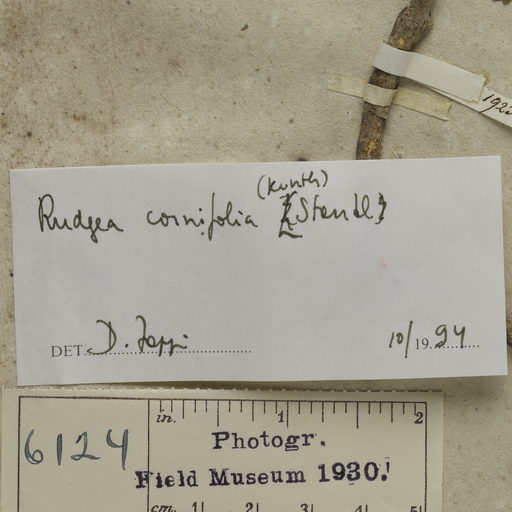 192
(Kunth)
Rudgea cornifolia {Standl}
DET. D. Zappi 10/1994
in. 1 2
6124
Photogr.
Field Museum 1930.
cm. 1 2 3 4 5